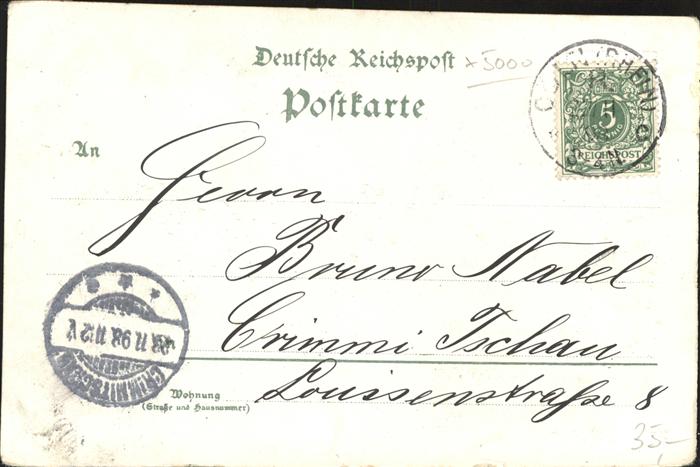 Deutsche Reichspost
x 5000
Postkarte
5
REICHSPOST
An
Herrn
Bruno Nabel
Crimmi Tschau
Wohnung
(Straße und Hausnummer)
Louissenstraße 8
CRIMMITSCHAU
11 98 11-12 V
35,-